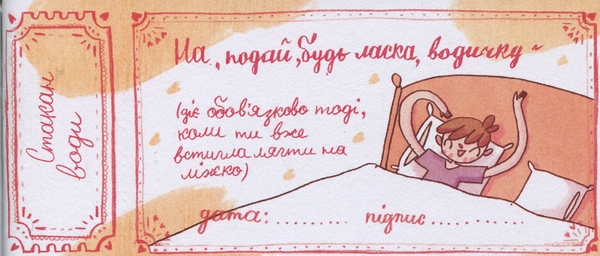 Стакан
води
На „подай, будь ласка, водичку"
(діє обов'язково тоді,
коли ти вже
встигла лягти на
ліжко)
дата:........... підпис...........